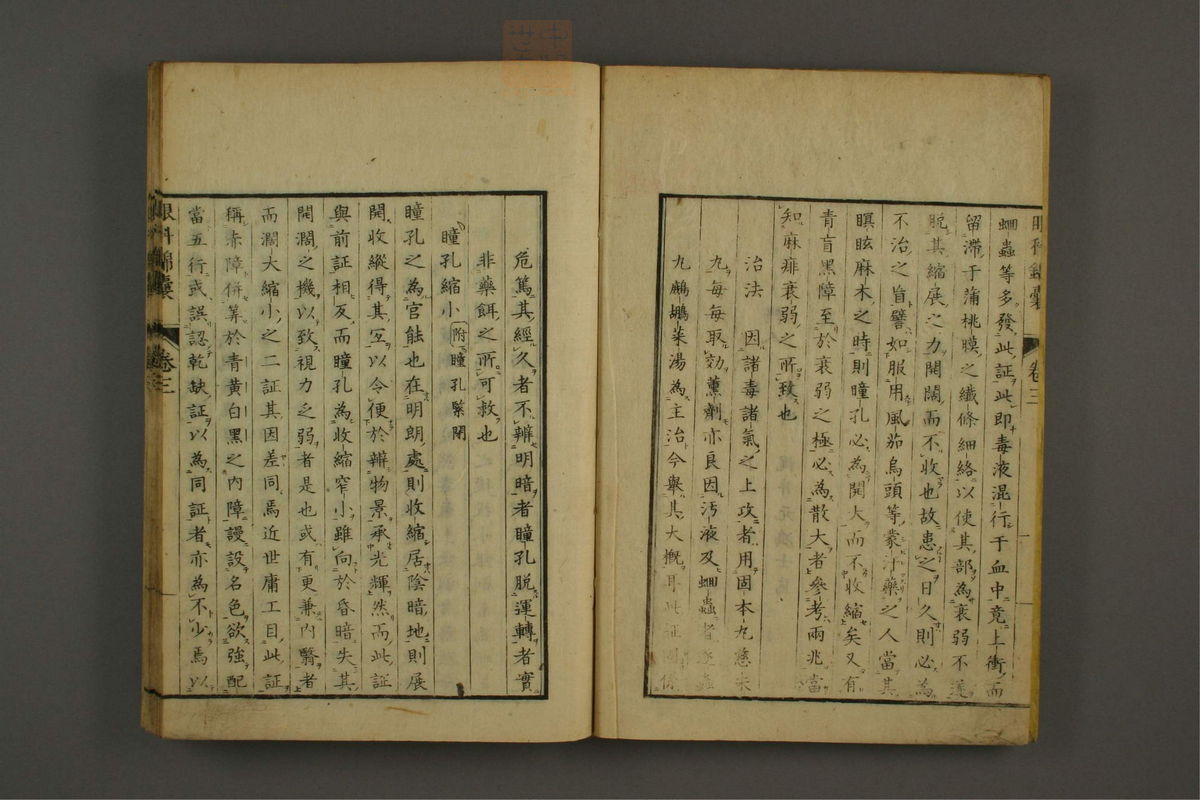 眼科錦囊 卷三
蛔蟲等多發此証此即毒液混行于血中竟上衝而
留滯于蒲桃膜之纖條細絡以使其部為衰弱不遂
脫其縮展之力開闊而不收也故患之日久則必為
不治之旨譬如服用風茄烏頭等蒙汁藥之人當其
瞑眩麻木之時則瞳孔必為開大而不收縮矣又有
青盲黑障至於衰弱之極必為散大者參考兩兆當
知麻痱衰弱之所致也
治法 因諸毒諸氣之上攻者用固本丸
丸每每取効薰劑亦良因汚液及蛔蟲者
丸鷓鴣菜湯為主治今舉其大槪耳此証
危篤其經久者不辨明暗者瞳孔脫運轉者實
非藥餌之所可救也
瞳孔縮小 附瞳孔緊閉
瞳孔之為官能也在明朗處則收縮居陰暗地則展
開收縱得其宜以令便於辨物景承光輝然而此証
與前証相反而瞳孔為收縮窄小雖向於昏暗失其
開濶之機以致視力之弱者是也或有更兼內翳者
而濶大縮小之二証其因差同焉近世庸工目此証
稱赤障併筭於青黃白黑之內障謾設名色欲強配
當五行或誤認乾缺証以為同証者亦為不少焉以
眼科錦囊 卷三